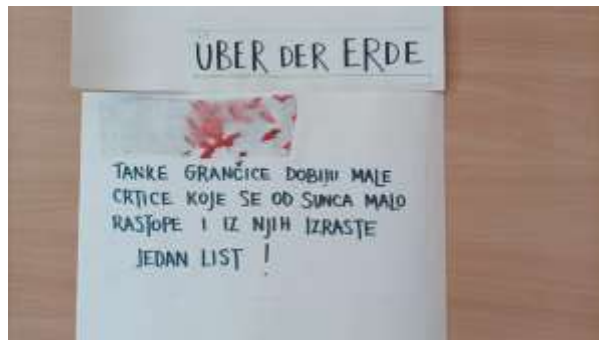 UBER DER ERDE
TANKE GRANČICE DOBIJU MALE
CRTICE KOJE SE OD SUNCA MALO
RASTOPE I IZ NJIH IZRASTE
JEDAN LIST !